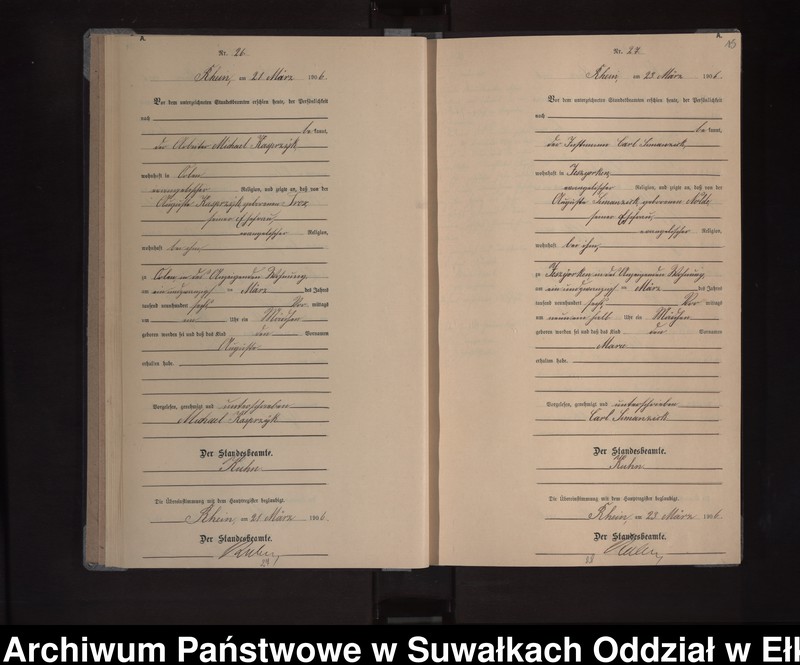 A.
Nr. 26.
Rhein, am 21. März 1906.
Vor dem unterzeichneten Standesbeamten erschien heute, der Persönlichkeit
nach
bekannt,
der Arbeiter Michael Kasprzyk,
wohnhaft in Orlen
evangelischer Religion, und zeigte an, daß von der
Auguste Kasprzyk geborenen
seiner Ehefrau,
evangelischer Religion,
wohnhaft bei ihm,
zu Orlen in des Anzeigenden Wohnung
am ein und zwanzigs März des Jahres
tausend neunhundert sechs Vor mittags
um Uhr ein Mädchen
geboren worden sei und daß das Kind den Vornamen
Auguste
erhalten habe.
Vorgelesen, genehmigt und unterschrieben
Michael Kasprzyk
Der Standesbeamte.
Kuhn
Die Übereinstimmung mit dem Hauptregister beglaubigt.
Rhein, am 21. März 1906.
Der Standesbeamte.
Kuhn
A.
15
Nr. 27.
Rhein, am 23. März 1906.
Vor dem unterzeichneten Standesbeamten erschien heute, der Persönlichkeit
nach
bekannt,
der Instmann Carl
wohnhaft in
evangelischer Religion, und zeigte an, daß von der
Auguste geborenen
seiner Ehefrau,
evangelischer Religion,
wohnhaft bei ihm,
zu in des Anzeigenden Wohnung
am ein und zwanzigs März des Jahres
tausend neunhundert sechs Vor mittags
um neun ein halb Uhr ein Mädchen
geboren worden sei und daß das Kind den Vornamen
Marie
erhalten habe.
Vorgelesen, genehmigt und unterschrieben
Carl
Der Standesbeamte.
Kuhn
Die Übereinstimmung mit dem Hauptregister beglaubigt.
Rhein, am 23. März 1906.
Der Standesbeamte.
Kuhn
Archiwum Państwowe w Suwałkach Oddział w Eł